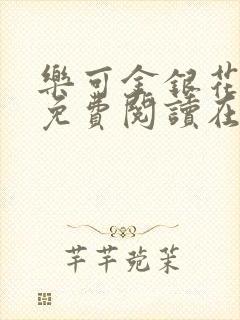 樂可金銀花
免費閱讀在
芊芊菀茉